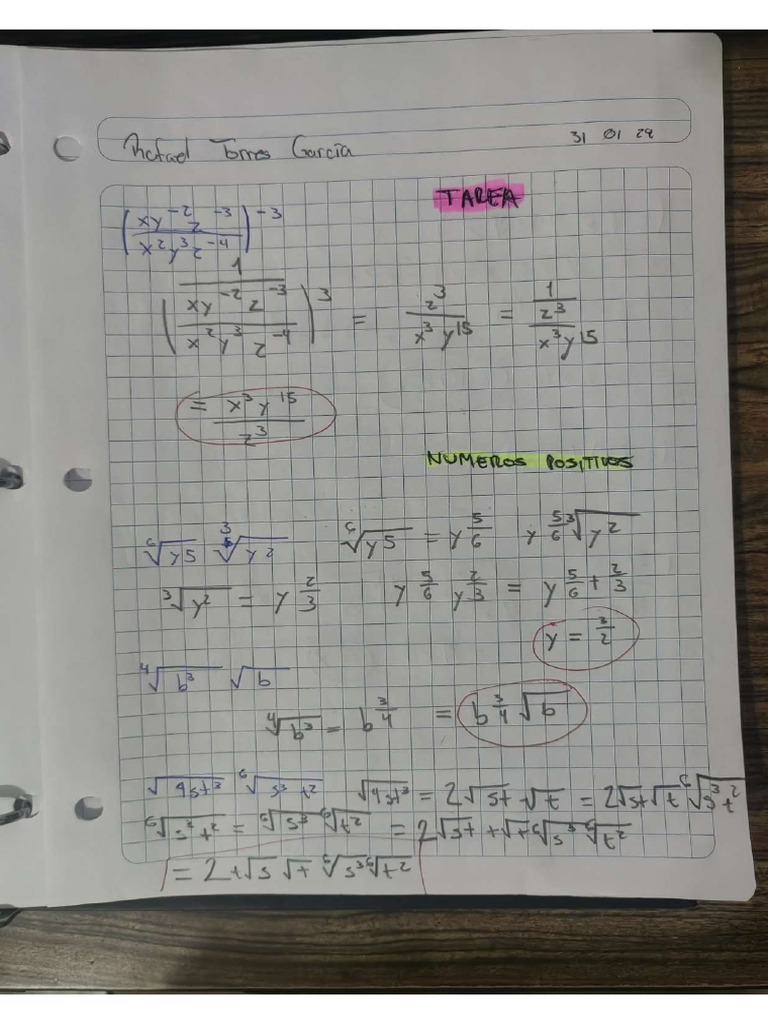 Rafael Torres García 31 01 24
TAREA
(xy^-2 z^-3 / x^2 y^3 z^-4)^-3
(1 / (xy^-2 z^-3 / x^2 y^3 z^-4))^3 = z^3 / x^3 y^15 = 1 / (z^3 / x^3 y^15)
= x^3 y^15 / z^3
NUMEROS POSITIVOS
⁶√y5 ³√y^2 ⁶√y5 = y^5/6 y^5/6 ³√y^2
³√y^2 = y^2/3 y^5/6 y^2/3 = y^5/6 + 2/3
y = 3/2
⁴√b^3 √b
⁴√b^3 = b^3/4 = b^3/4 √b
√4st^3 ⁶√s^3 t^2 √4st^3 = 2√st √t = 2√st √t ⁶√s^3 t^2
⁶√s^2 t^2 = ⁶√s^3 ⁶√t^2 = 2√st + √t ⁶√s^3 ⁶√t^2
= 2 t √s √t ⁶√s^3 ⁶√t^2